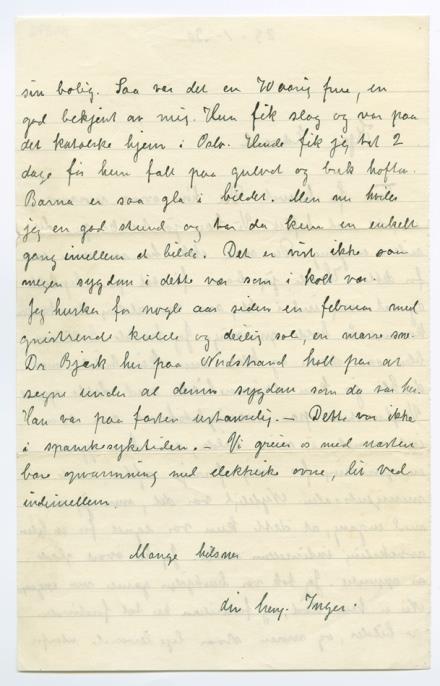 sin bolig. Saa var det en 70 aarig frue, en
god bekjent av mig. Hun fik slag og var paa
det katolske hjem i Oslo. Hende fik jeg tat 2
dage før hun falt paa gulvet og brak hoften.
Barna er saa gla i bildet. Men nu hviler
jeg en god stund og tar da kun en enkelt
gang imellem et bilde. Det er vist ikke saa
megen sygdom i dette vær som i koldt vær.
Jeg husker for nogle aar siden en februar med
gnistrende kulde og deilig sol, en masse sne.
Dr Bjerk her paa Nordstrand holt paa at
segne under al denne sygdom som da var her.
Han var paa farten ustanselig. — Dette var ikke
i spanskesyketiden. — Vi greier os med næsten
bare opvarmning med elektriske ovne, lit ved
indimellem.
Mange hilsner
din heng. Inger.